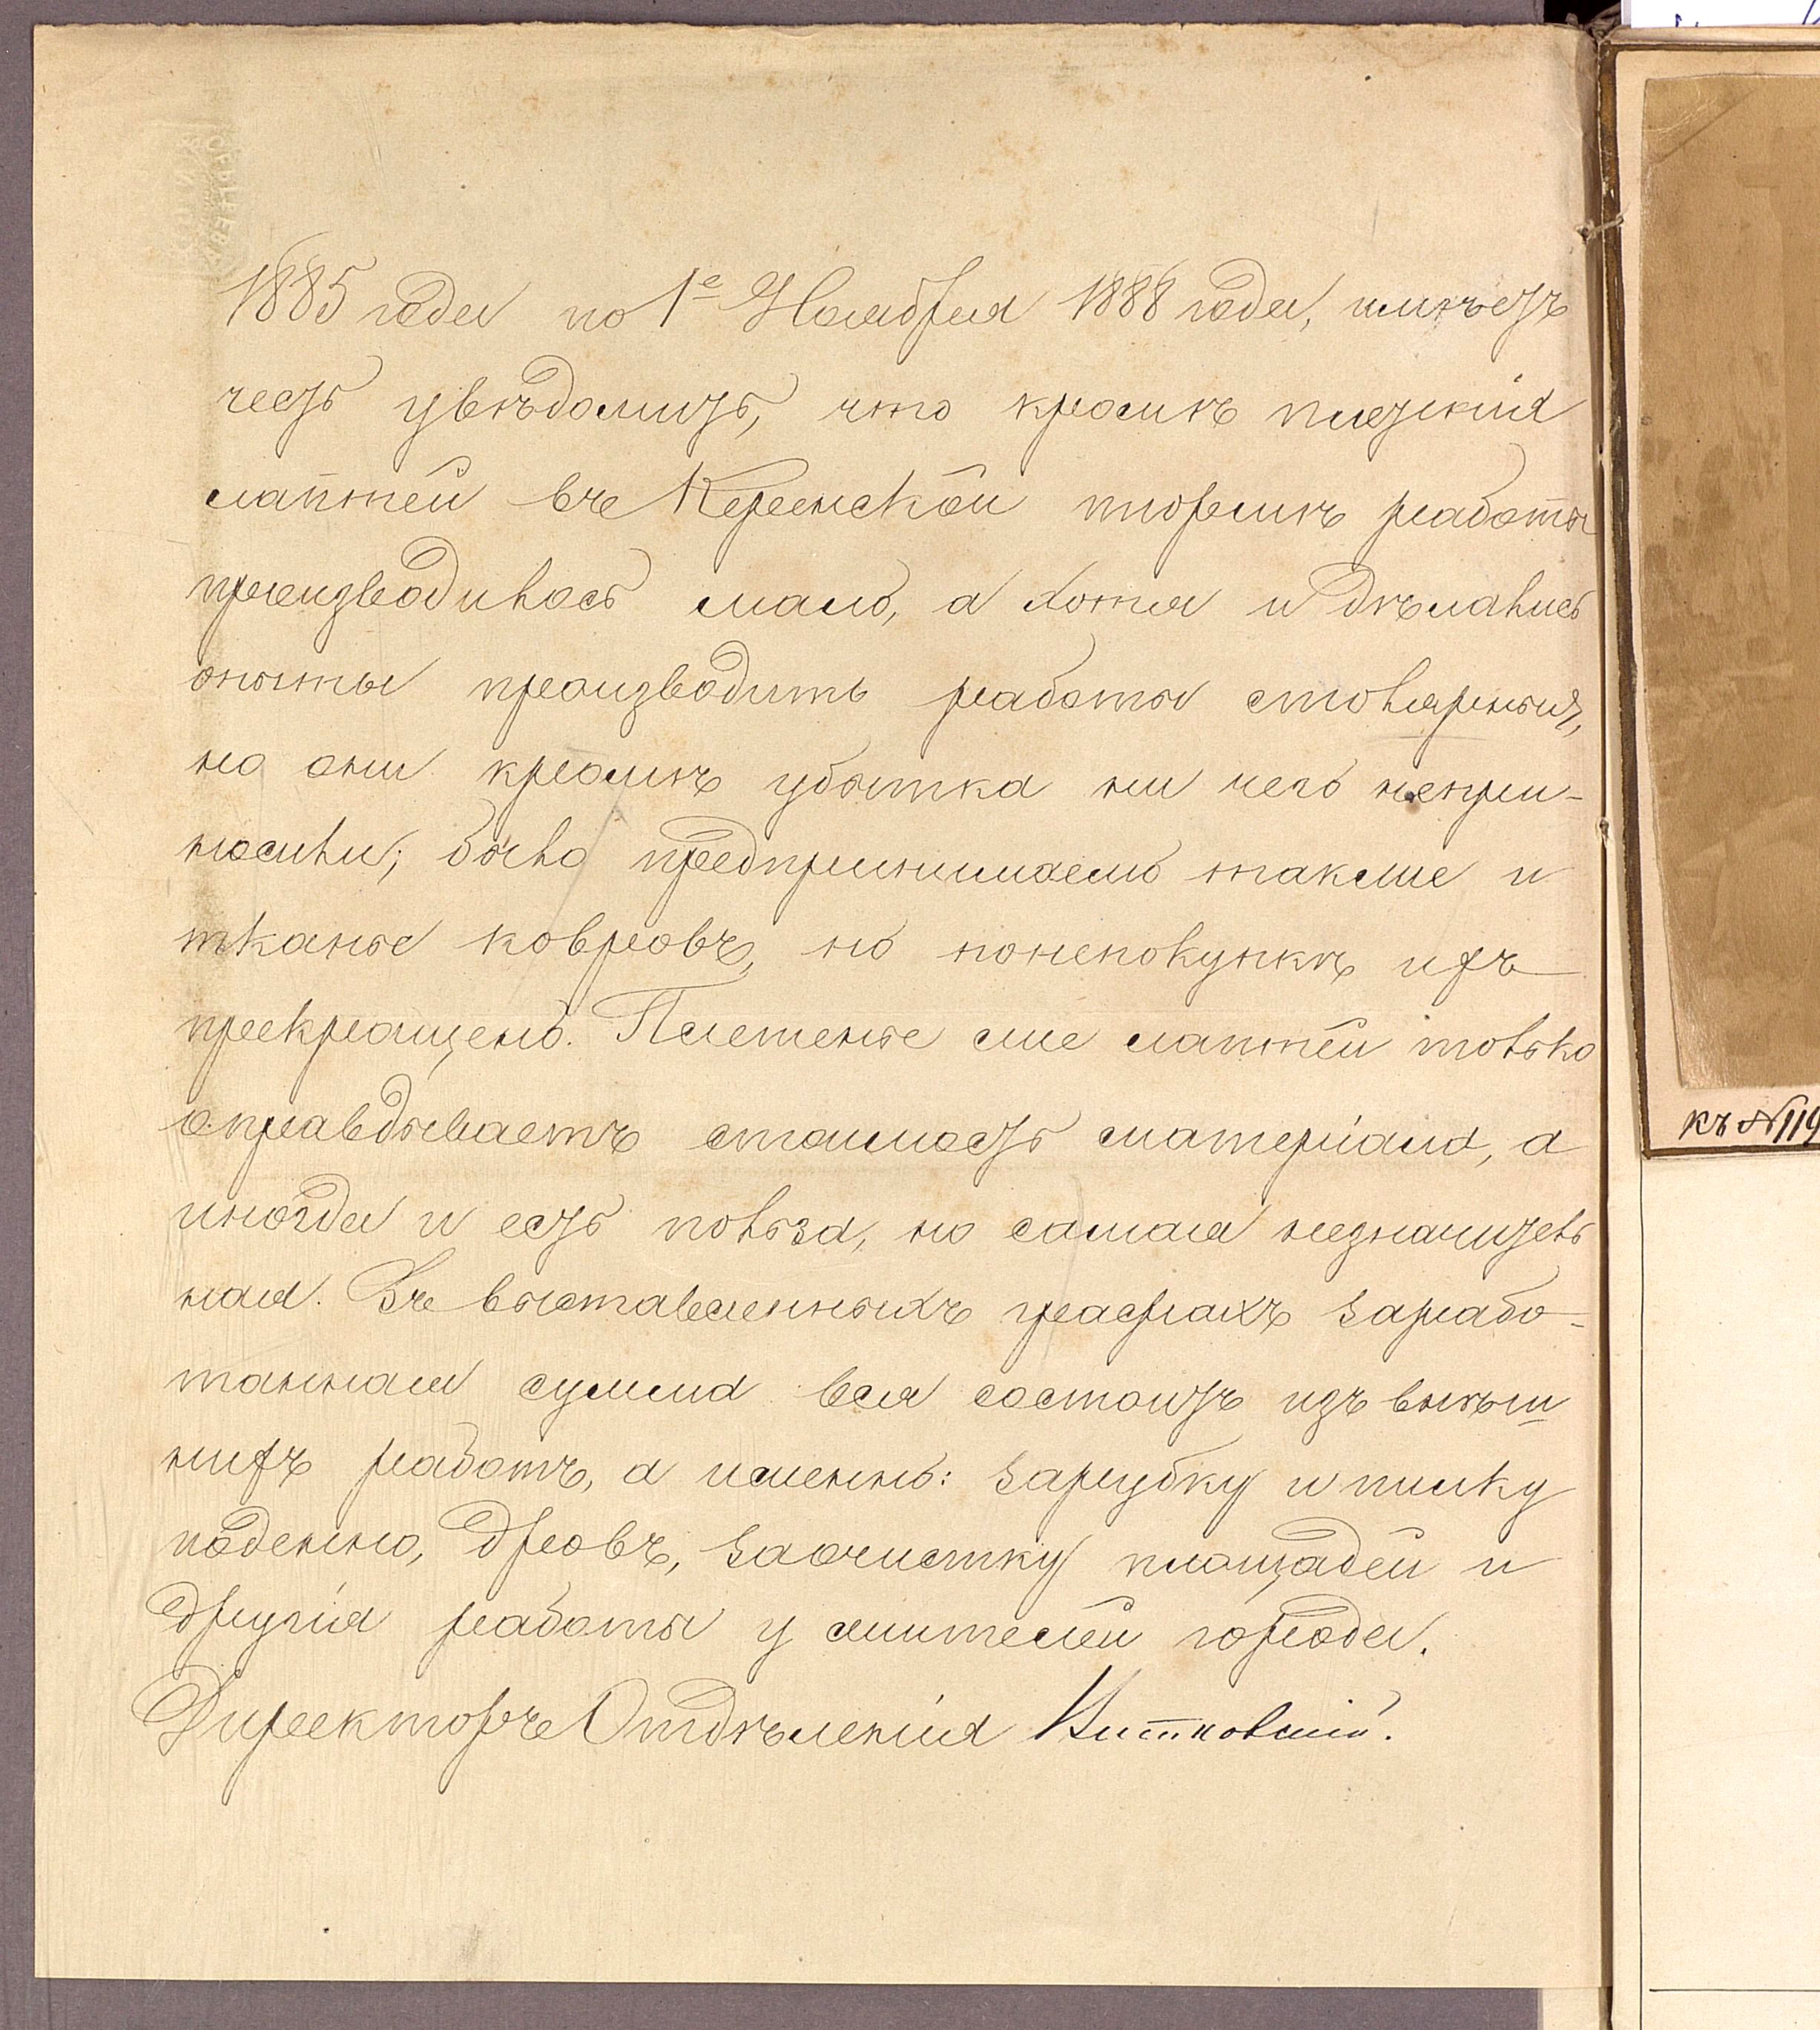 1885 года по 1е Ноября 1888 года, имѣетъ
честь увѣдомить, что кромѣ плетенія
лаптей въ Керенской тюрьмѣ работъ
производилось мало, а хотя и дѣлались
опыты производить работы столярныя,
но они кромѣ убытка ни чего непри-
носили; было предпринимаемо также и
тканье ковровъ, но понепокупкѣ ихъ
прекращено. Плетенье же лаптей только
оправдываетъ стоимость матеріала, а
иногда и есть польза, но самая незначитель
ная. Въ выставленныхъ графахъ зарабо-
танная сумма вся состоитъ изъ внѣш
нихъ работъ, а именно: зарубку и пилку
поденно, дровъ, заочистку площадей и
другія работы у жителей города.
Директоръ Отдѣленія
къ №119